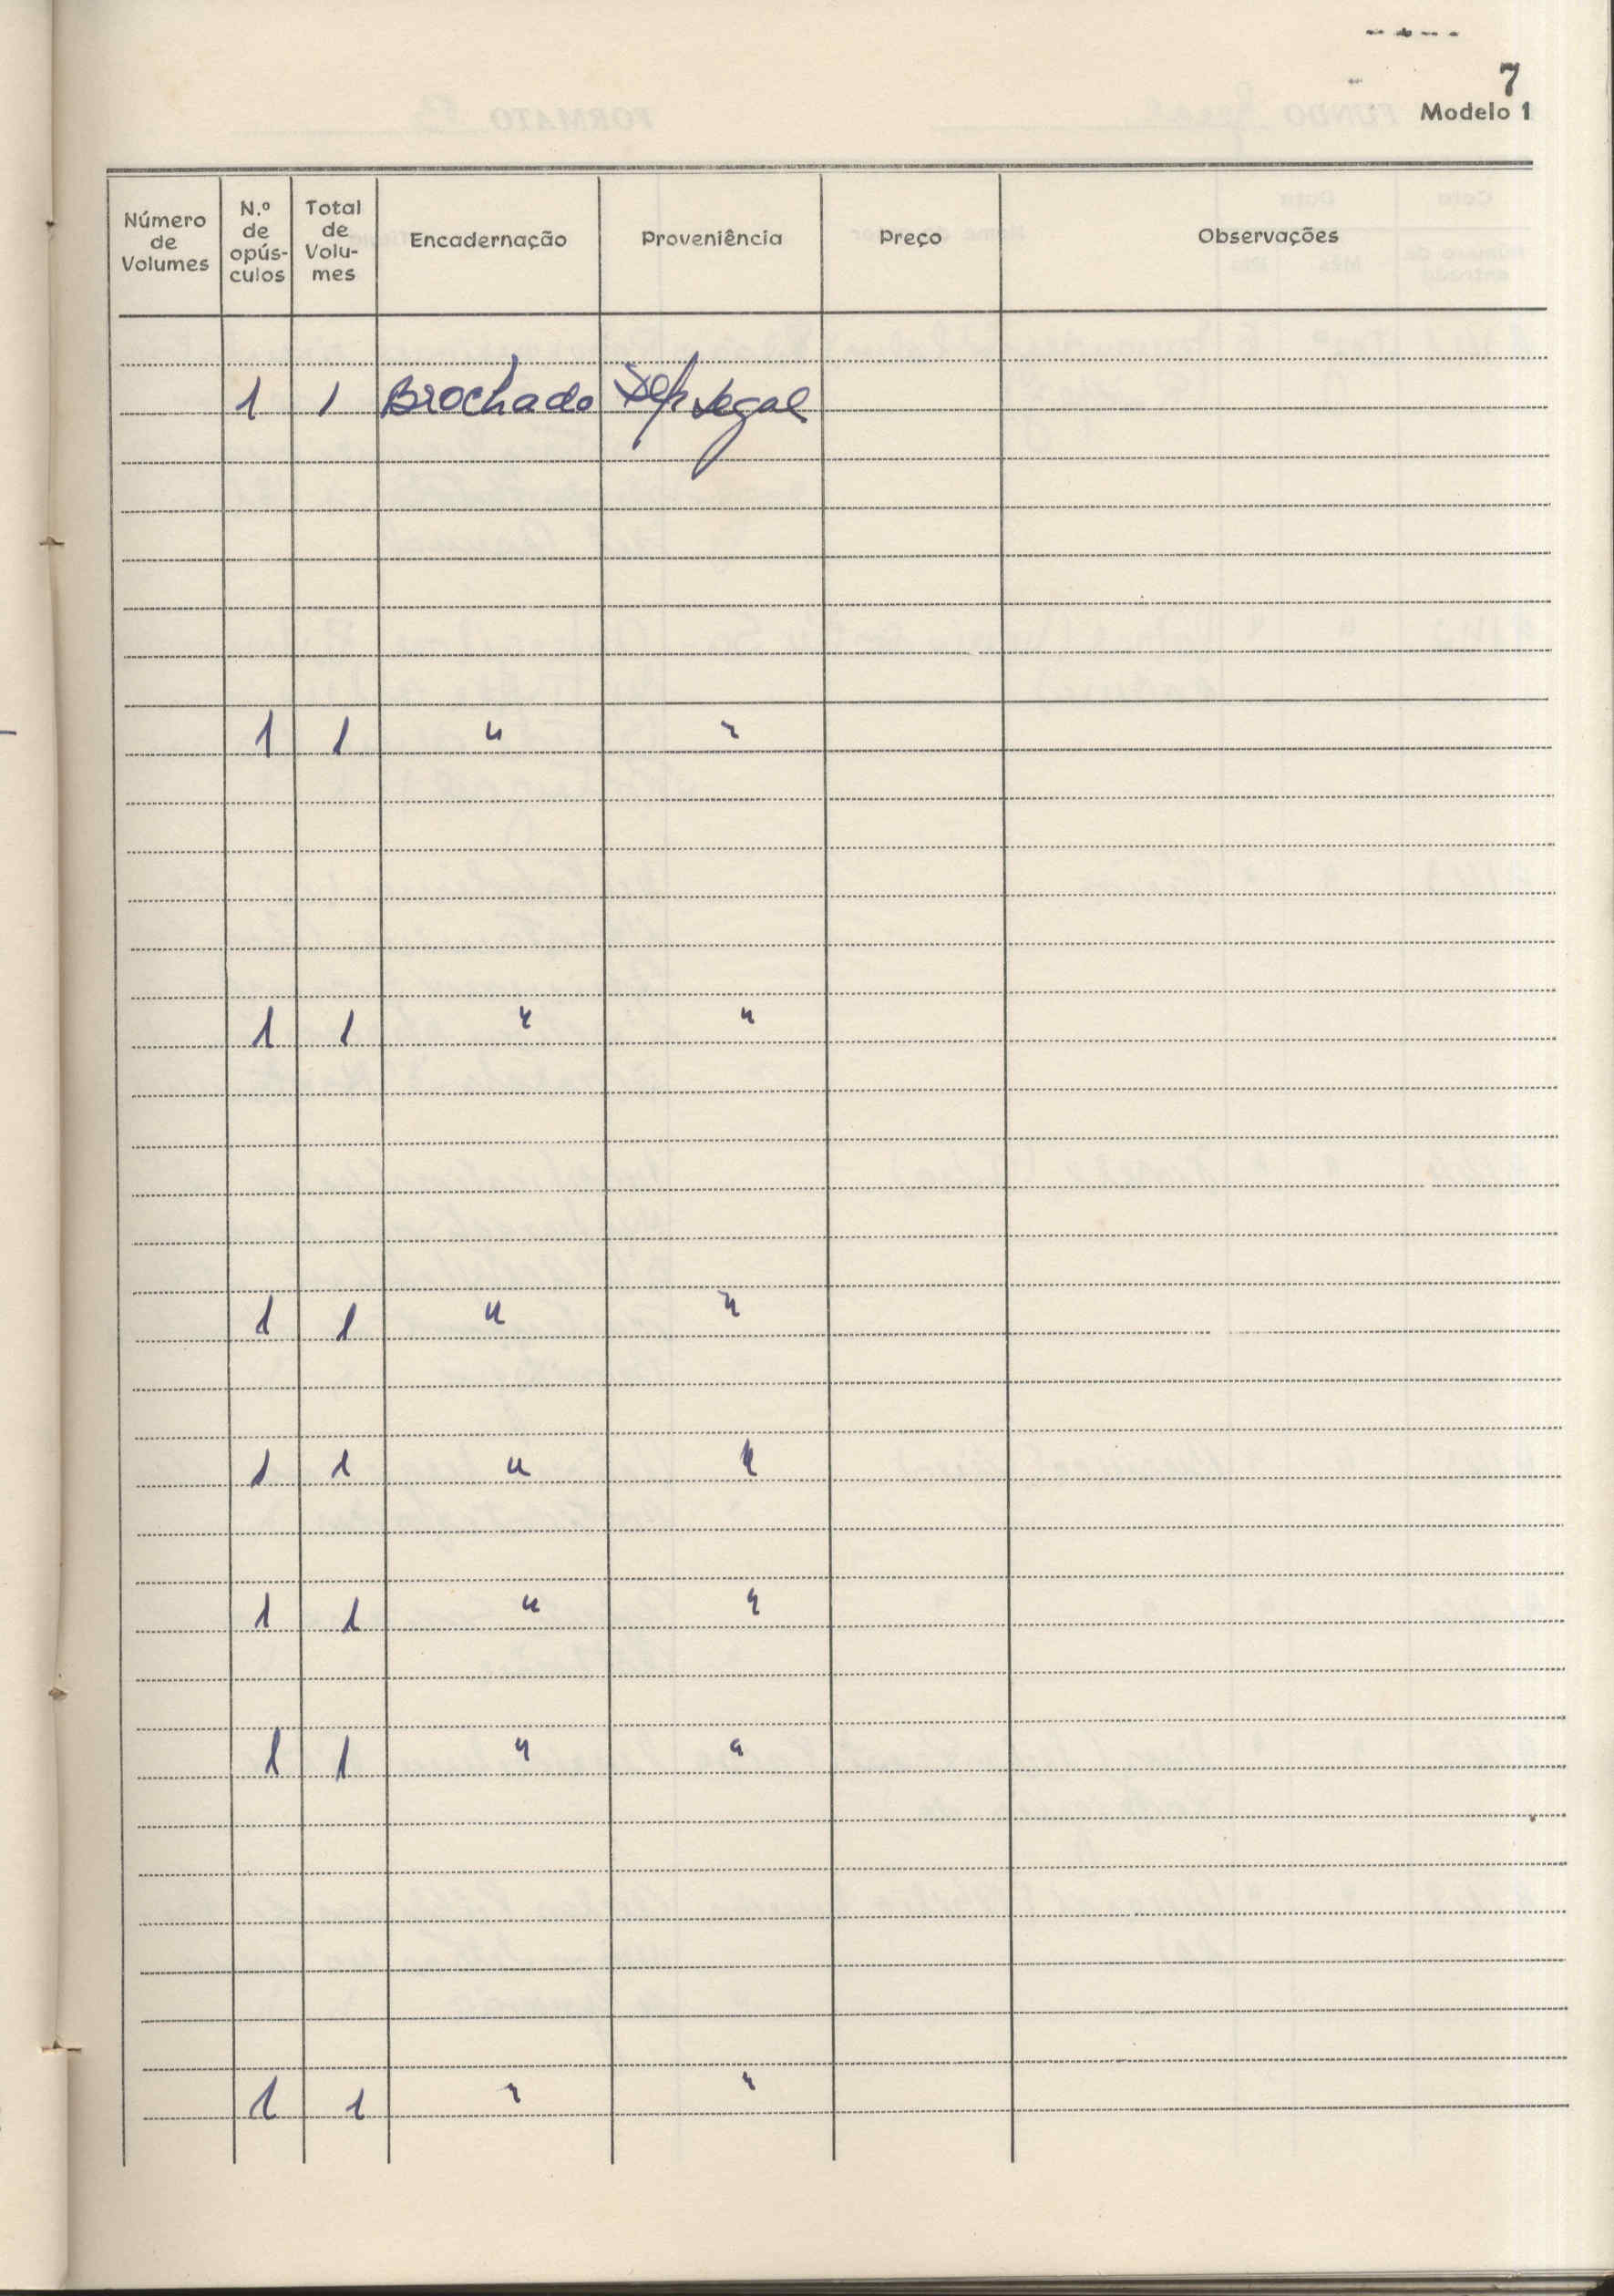 7
Modelo 1
Número de Volumes N.º de opús-culos Total de Volu-mes Encadernação Proveniência Preço Observações
1 1 Brochado Dep Legal
1 1 " "
1 1 " "
1 1 " "
1 1 " "
1 1 " "
1 1 " "
1 1 " "